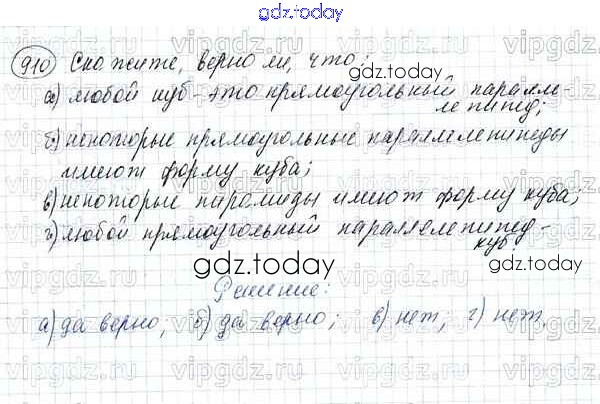 gdz.today
910 Скажите, верно ли, что:
gdz.today
а) любой куб - это прямоугольный паралле-
лепипед;
б) некоторые прямоугольные параллелепипеды
имеют форму куба;
в) некоторые пирамиды имеют форму куба;
г) любой прямоугольный параллелепипед -
куб.
gdz.today
gdz.today
Решение:
а) да верно, б) да верно; в) нет, г) нет.